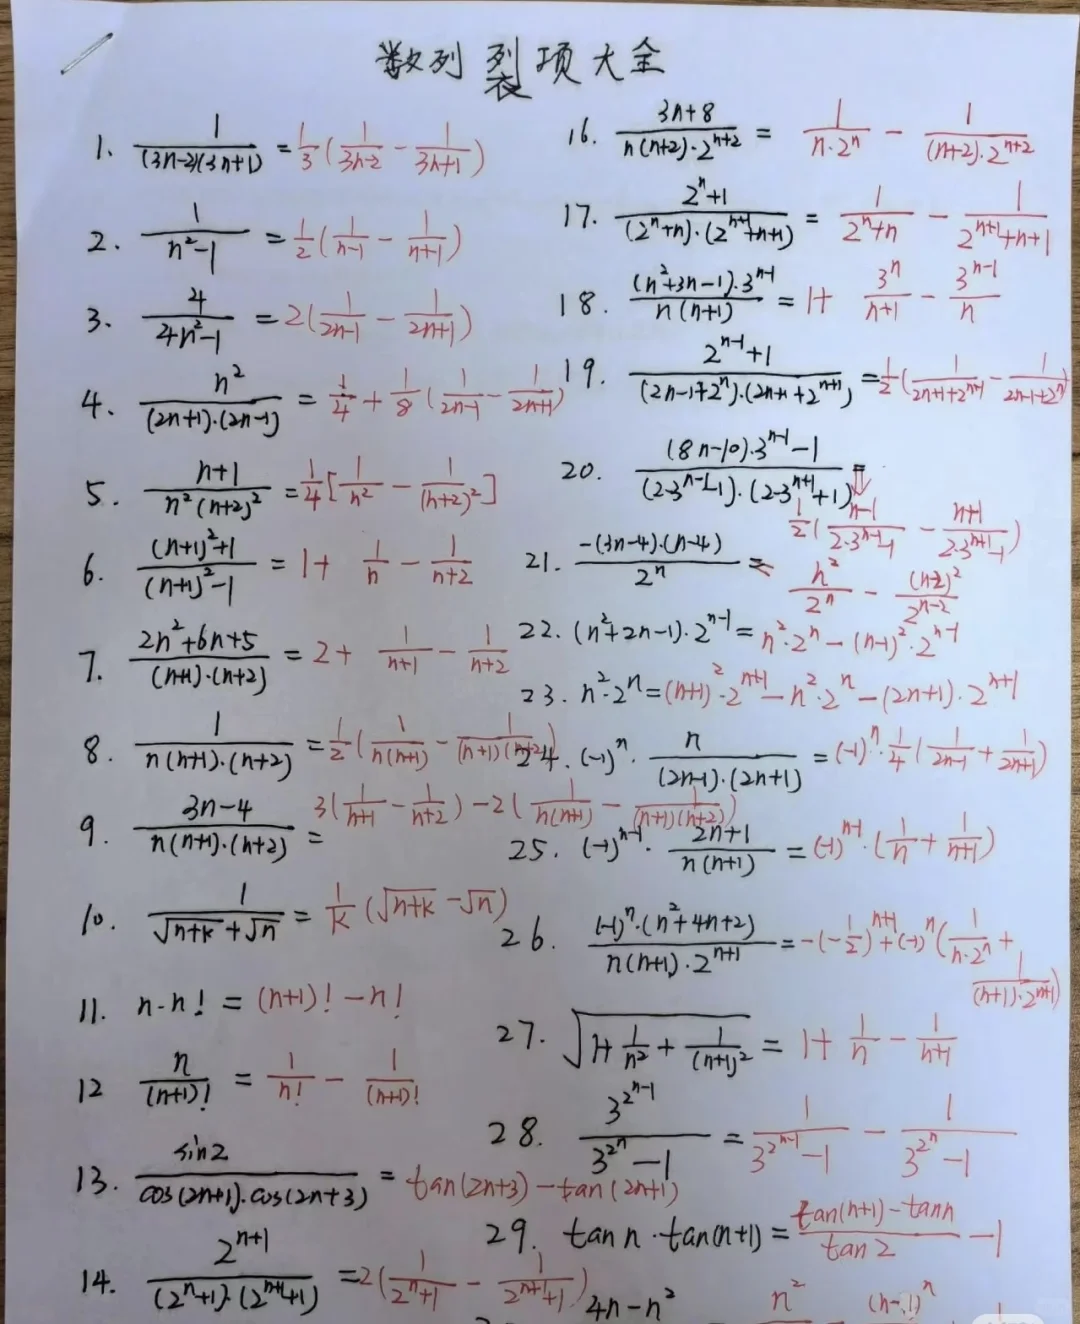 数列裂项大全
1. \frac{1}{(3n-2)(3n+1)} = \frac{1}{3}(\frac{1}{3n-2} - \frac{1}{3n+1})
2. \frac{1}{n^2-1} = \frac{1}{2}(\frac{1}{n-1} - \frac{1}{n+1})
3. \frac{4}{4n^2-1} = 2(\frac{1}{2n-1} - \frac{1}{2n+1})
4. \frac{n^2}{(2n+1)·(2n-1)} = \frac{1}{4} + \frac{1}{8}(\frac{1}{2n-1} - \frac{1}{2n+1})
5. \frac{n+1}{n^2(n+2)^2} = \frac{1}{4}[\frac{1}{n^2} - \frac{1}{(n+2)^2}]
6. \frac{(n+1)^2+1}{(n+1)^2-1} = 1+ \frac{1}{n} - \frac{1}{n+2}
7. \frac{2n^2+6n+5}{(n+1)·(n+2)} = 2+ \frac{1}{n+1} - \frac{1}{n+2}
8. \frac{1}{n(n+1)·(n+2)} = \frac{1}{2}(\frac{1}{n(n+1)} - \frac{1}{(n+1)(n+2)})
9. \frac{3n-4}{n(n+1)·(n+2)} = 3(\frac{1}{n+1} - \frac{1}{n+2}) - 2(\frac{1}{n(n+1)} - \frac{1}{(n+1)(n+2)})
10. \frac{1}{\sqrt{n+k}+\sqrt{n}} = \frac{1}{k}(\sqrt{n+k} - \sqrt{n})
11. n·n! = (n+1)! - n!
12 \frac{n}{(n+1)!} = \frac{1}{n!} - \frac{1}{(n+1)!}
13. \frac{sin2}{cos(2n+1)·cos(2n+3)} = tan(2n+3) - tan(2n+1)
14. \frac{2^{n+1}}{(2^n+1)·(2^{n+1}+1)} = 2(\frac{1}{2^n+1} - \frac{1}{2^{n+1}+1})
16. \frac{3n+8}{n(n+2)·2^{n+2}} = \frac{1}{n·2^n} - \frac{1}{(n+2)·2^{n+2}}
17. \frac{2^n+1}{(2^n+n)·(2^{n+1}+n+1)} = \frac{1}{2^n+n} - \frac{1}{2^{n+1}+n+1}
18. \frac{(n^2+3n-1)·3^{n-1}}{n(n+1)} = 1+ \frac{3^n}{n+1} - \frac{3^{n-1}}{n}
19. \frac{2^{n-1}+1}{(2n-1+2^n)·(2n+1+2^{n+1})} = \frac{1}{2}(\frac{1}{2n+1+2^{n+1}} - \frac{1}{2n-1+2^n})
20. \frac{(8n-10)·3^{n-1}-1}{(2·3^{n-1}-1)·(2·3^{n+1}+1)} =
⇓
\frac{1}{2}(\frac{n-1}{2·3^{n-1}-1} - \frac{n+1}{2·3^{n+1}-1})
21. \frac{-(3n-4)·(n-4)}{2^n} = \frac{n^2}{2^n} - \frac{(n-2)^2}{2^{n-2}}
22. (n^2+2n-1)·2^{n-1} = n^2·2^n - (n-1)^2·2^{n-1}
23. n^2·2^n = (n+1)^2·2^{n+1} - n^2·2^n - (2n+1)·2^{n+1}
24. (-1)^n · \frac{n}{(2n-1)·(2n+1)} = (-1)^n·\frac{1}{4}(\frac{1}{2n-1} + \frac{1}{2n+1})
25. (-1)^{n-1} · \frac{2n+1}{n(n+1)} = (-1)^{n-1}·(\frac{1}{n} + \frac{1}{n+1})
26. \frac{(-1)^n·(n^2+4n+2)}{n(n+1)·2^{n+1}} = -(-\frac{1}{2})^{n+1}+(-1)^n(\frac{1}{n·2^n} +
\frac{1}{(n+1)·2^{n+1}})
27. \sqrt{1+\frac{1}{n^2}+\frac{1}{(n+1)^2}} = 1+ \frac{1}{n} - \frac{1}{n+1}
28. \frac{3^{2^{n-1}}}{3^{2^n}-1} = \frac{1}{3^{2^{n-1}}-1} - \frac{1}{3^{2^n}-1}
29. tan n·tan(n+1) = \frac{tan(n+1)-tan n}{tan 2} - 1
4n-n^2 n^2 (n-1)^n